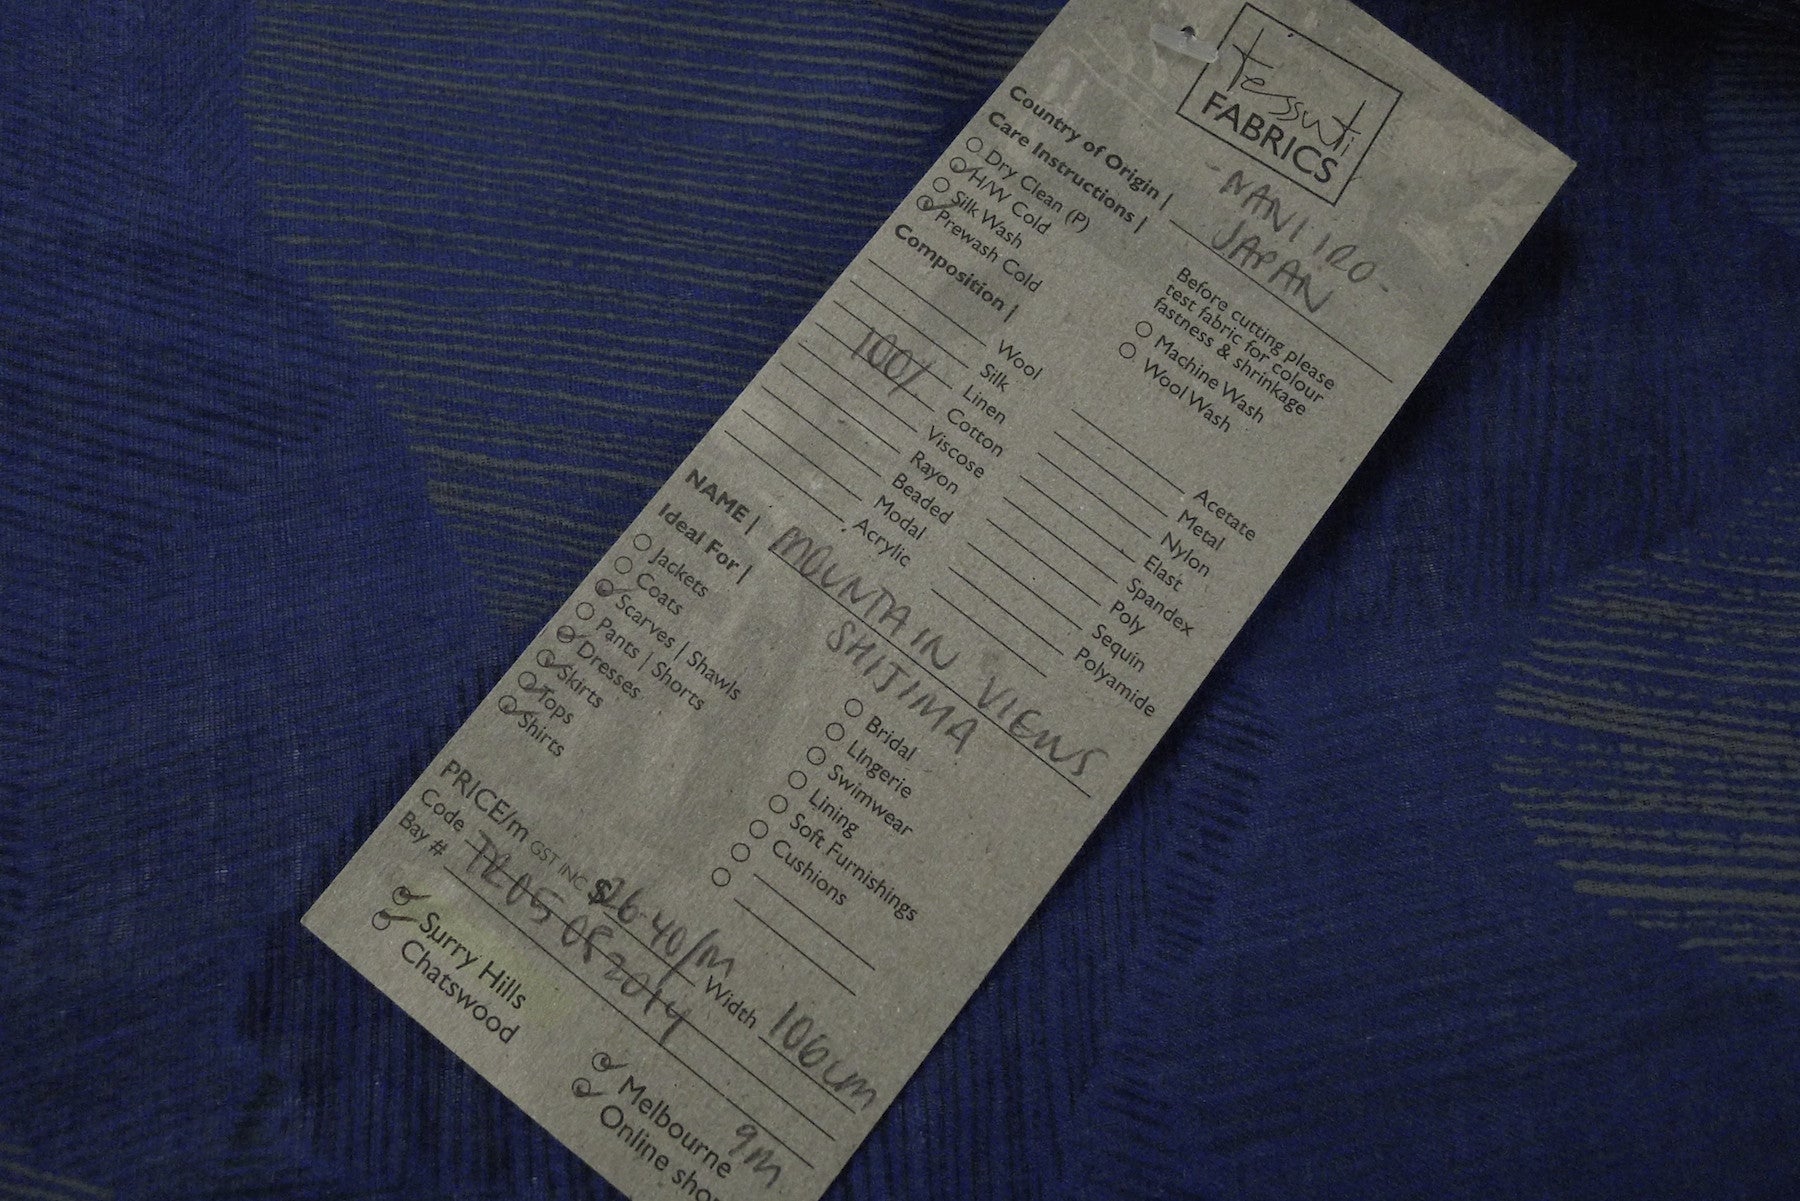 tessuti
FABRICS
- NANI IRO -
Country of Origin | JAPAN
Care Instructions |
Dry Clean (P)
H/W Cold
Silk Wash
Prewash Cold
Before cutting please
test fabric for colour
fastness & shrinkage
Machine Wash
Wool Wash
Composition |
Wool
Silk
Linen
100% Cotton
Viscose
Rayon
Beaded
Modal
Acrylic
Acetate
Metal
Nylon
Elast
Spandex
Poly
Sequin
Polyamide
NAME | MOUNTAIN VIEWS
SHIJIMA
Ideal For |
Jackets
Coats
Scarves | Shawls
Pants | Shorts
Dresses
Skirts
Tops
Shirts
Bridal
LIngerie
Swimwear
Lining
Soft Furnishings
Cushions
PRICE/m GST INC $26.40/m Width 106cm
Code
Bay #
Surry Hills
Chatswood
Melbourne 9m
Online